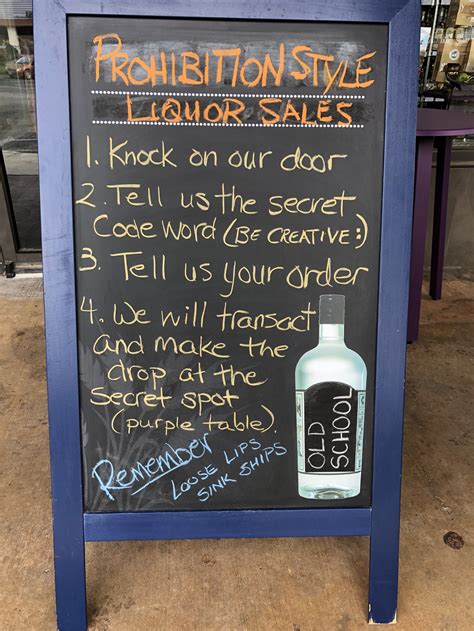 PROHIBITION STYLE
LIQUOR SALES
1. Knock on our door
2. Tell us the secret
Code Word (BE CREATIVE :)
3. Tell us your order
4. We will transact
and make the
drop at the
secret spot
(purple table).
Remember
LOOSE LIPS
SINK SHIPS
OLD
SCHOOL